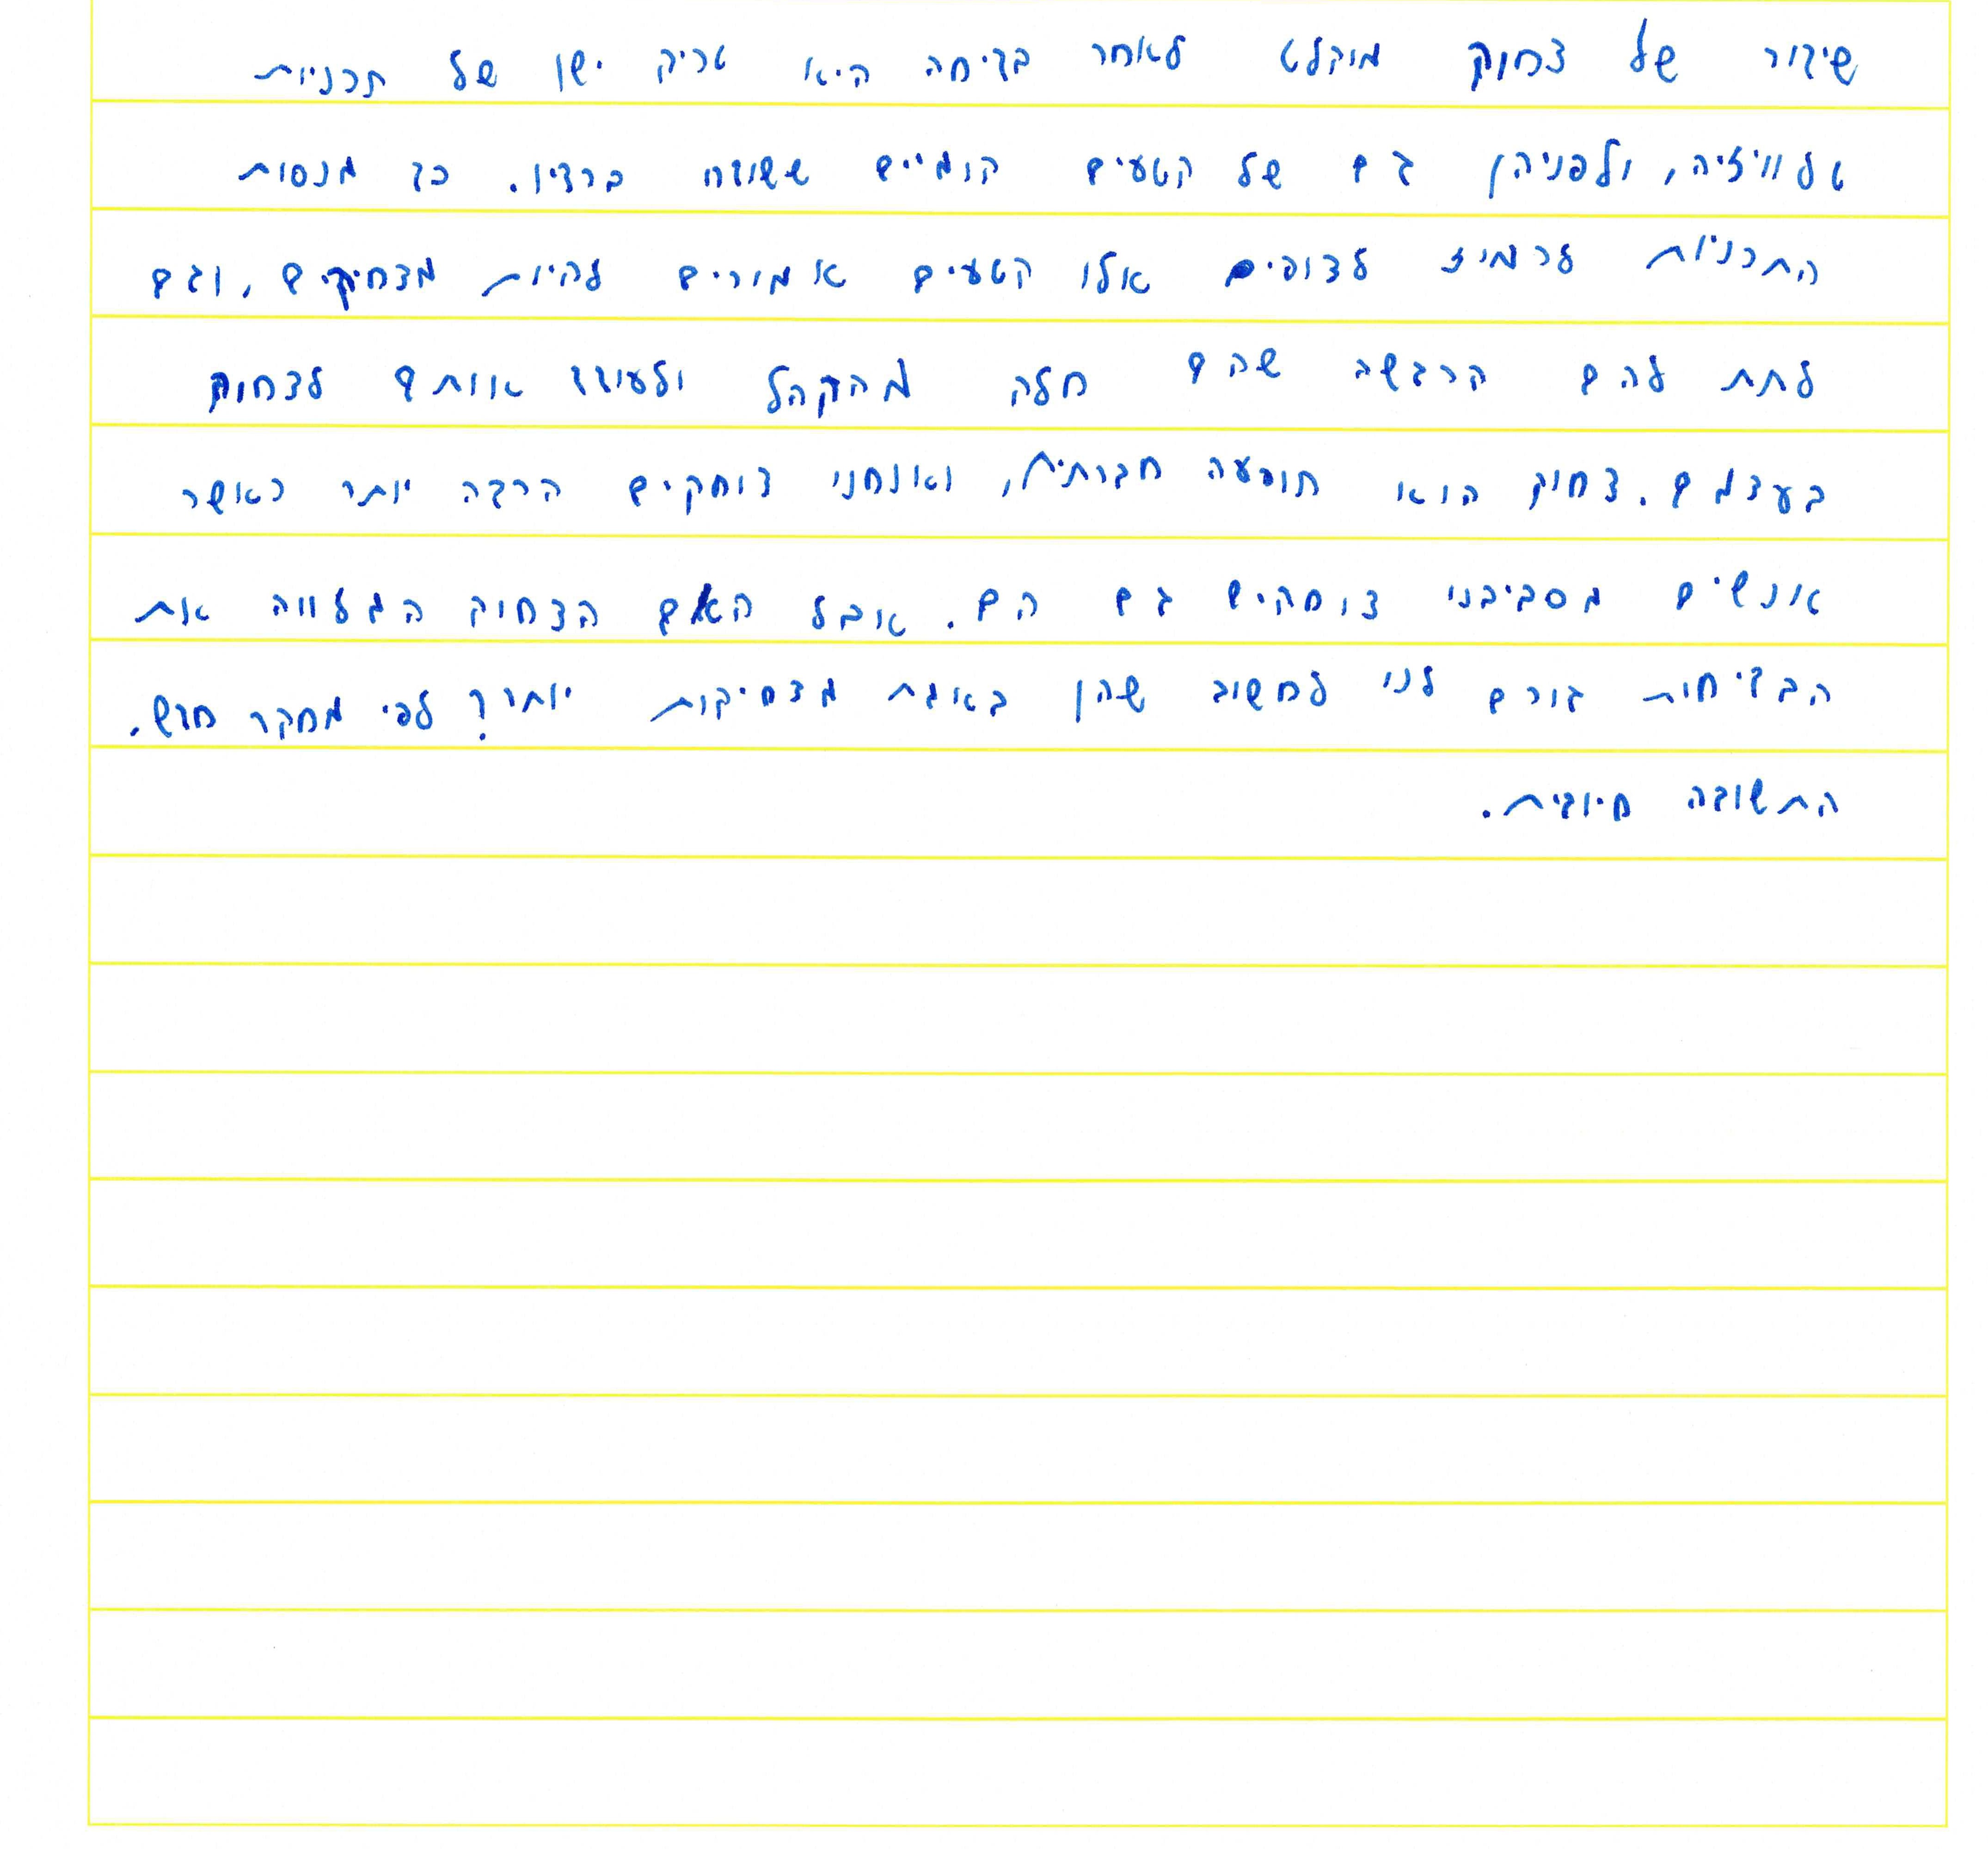 שידור של צחוק מוקלט לאחר בדיחה היא טריק ישן של תכניות
טלוויזיה, ולפניהן גם של קטעים קומיים ששודרו ברדיו. כך מנסות
התכניות לרמוז לצופים אלו קטעים אמורים להיות מצחיקים, וגם
לתת להם הרגשה שהם חלק מהקהל ולעודד אותם לצחוק
בעצמם. צחוק הוא תופעה חברתית, ואנחנו צוחקים הרבה יותר כאשר
אנשים מסביבנו צוחקים גם הם. אבל האם הצחוק המלווה את
הבדיחות גורם לנו לחשוב שהן באמת מצחיקות יותר? לפי מחקר חדש,
התשובה חיובית.